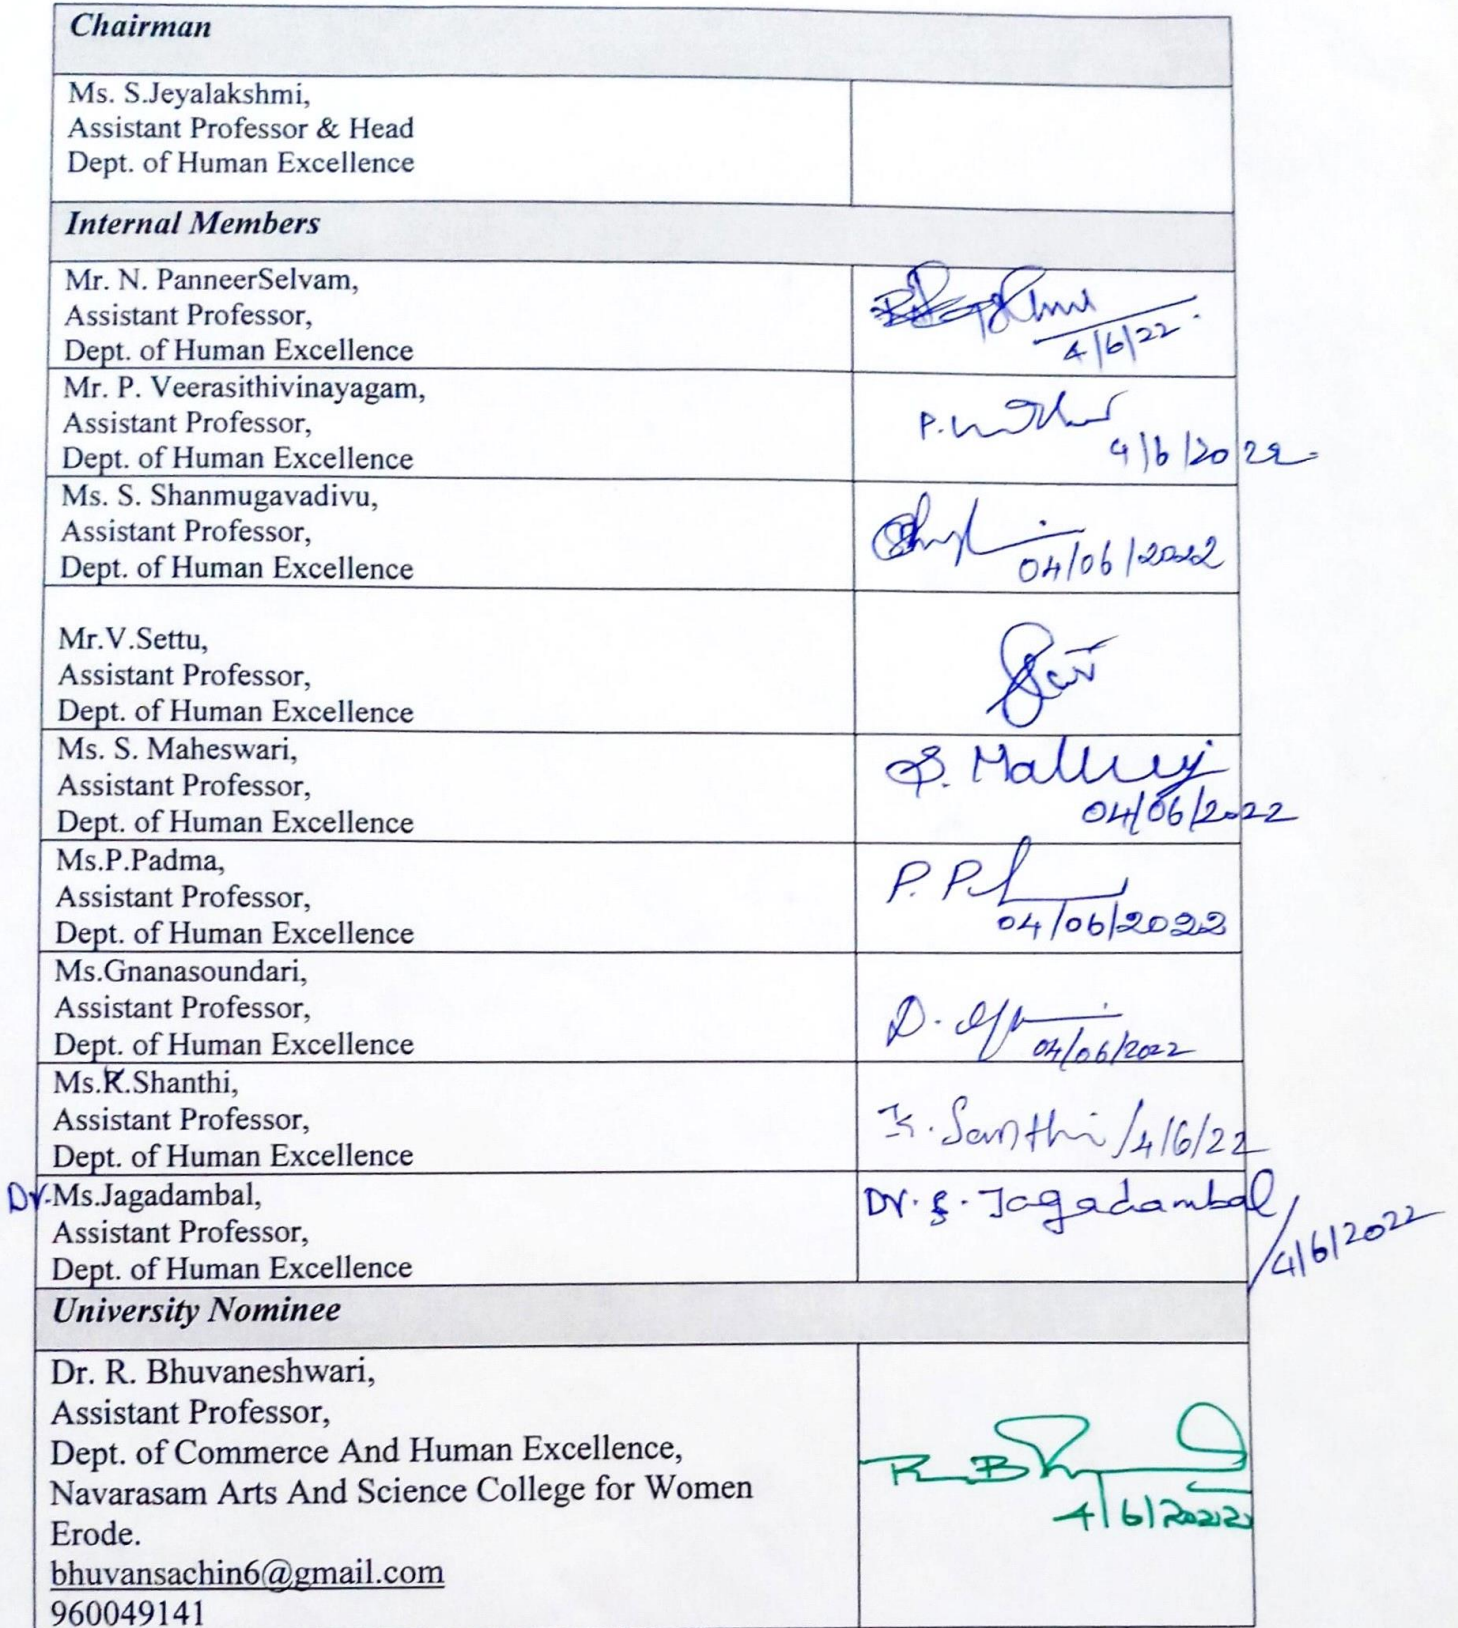 Chairman
Ms. S.Jeyalakshmi,
Assistant Professor & Head
Dept. of Human Excellence
Internal Members
Mr. N. PanneerSelvam,
Assistant Professor,
Dept. of Human Excellence
4/6/22.
Mr. P. Veerasithivinayagam,
Assistant Professor,
Dept. of Human Excellence
P.
4/6/2022
Ms. S. Shanmugavadivu,
Assistant Professor,
Dept. of Human Excellence
04/06/2022
Mr.V.Settu,
Assistant Professor,
Dept. of Human Excellence
Ms. S. Maheswari,
Assistant Professor,
Dept. of Human Excellence
S.
04/06/2022
Ms.P.Padma,
Assistant Professor,
Dept. of Human Excellence
P. P
04/06/2022
Ms.Gnanasoundari,
Assistant Professor,
Dept. of Human Excellence
D.
04/06/2022
Ms.K.Shanthi,
Assistant Professor,
Dept. of Human Excellence
K. Santhi /4/6/22
Dr. Ms.Jagadambal,
Assistant Professor,
Dept. of Human Excellence
Dr. S. Jagadambal
/4/6/2022
University Nominee
Dr. R. Bhuvaneshwari,
Assistant Professor,
Dept. of Commerce And Human Excellence,
Navarasam Arts And Science College for Women
Erode.
bhuvansachin6@gmail.com
960049141
R. B
4/6/2022